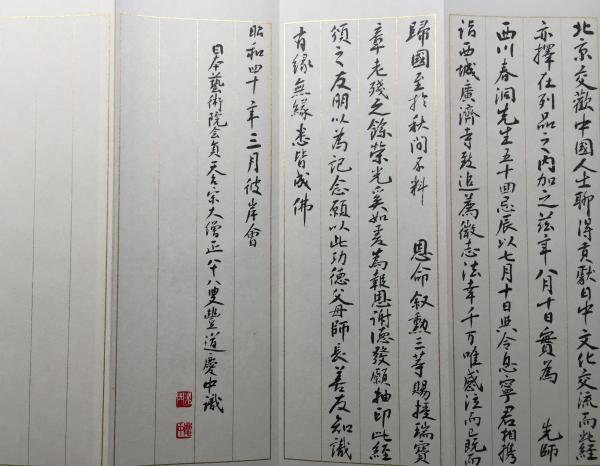 北京交歡中國人士聊得貢獻日中文化交流而此經
亦擇在列品之內加之茲年八月十日實為 先師
西川春洞先生五十回忌辰以七月十日與令息寧君相携
詣西城廣濟寺致追薦微志法幸千万唯感泣而已既而
歸國至於秋間不料 恩命敘勳三等賜授瑞寶
章老殘之餘榮光奚如爰為報恩謝德發願抽印此經
頒之友朋以為記念願以此功德父母師長善友知識
有緣無緣悉皆成佛
昭和四十年三月彼岸會
日本藝術院會員天台宗大僧正八十八叟豐道慶中識